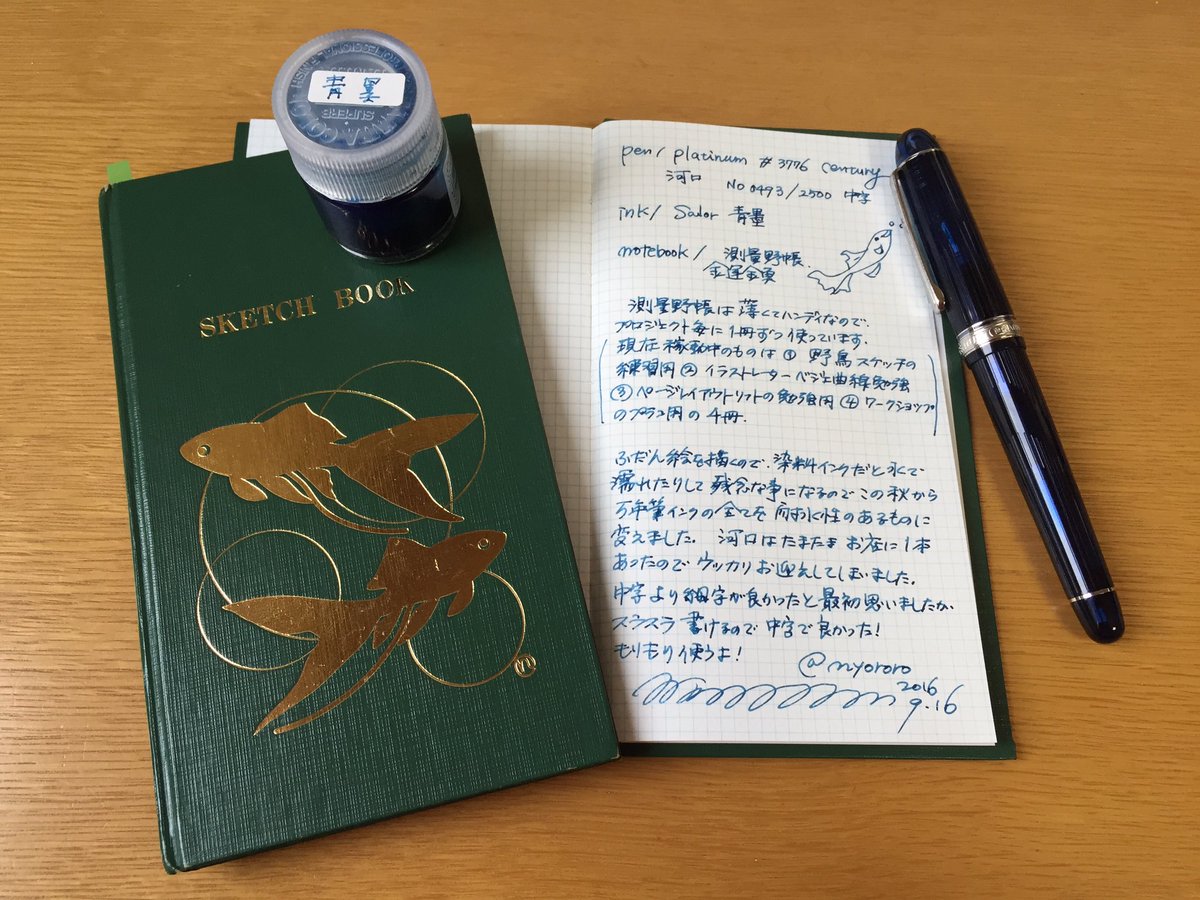 青墨
SUPERB
SKETCH BOOK
pen/ platinum #3776 century
河口 No 0493/2500 中字
ink/ Sailor 青墨
notebook/ 測量野帳
金運金魚
測量野帳は薄くてハンディなので、
プロジェクト毎に1冊ずつ使っています.
現在稼動中のものは ① 野鳥スケッチの
練習用 ② イラストレーターベジェ曲線勉強
③ ページレイアウトソフトの勉強用 ④ ワークショップ
のプラン用の4冊.
ふだん絵を描くので、染料インクだと水で
濡れたりして残念な事になるのでこの秋から
万年筆インクの全てを耐水性のあるものに
変えました. 河口はたまたまお店に1本
あったのでウッカリお迎えしてしまいました.
中字より細字が良かったと最初思いましたが、
スラスラ書けるので中字で良かった!
もりもり使うよ!
@nyororo
2016
9.16